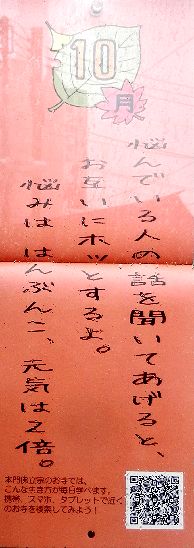 10
月
悩んでいる人の話を聞いてあげると、
お互いにホッとするよ。
悩みは はんぶんこ、元気は2倍。
本門佛立宗のお寺では、
こんな生き方が毎日学べます。
携帯、スマホ、タブレットで近く
のお寺を検索してみよう！